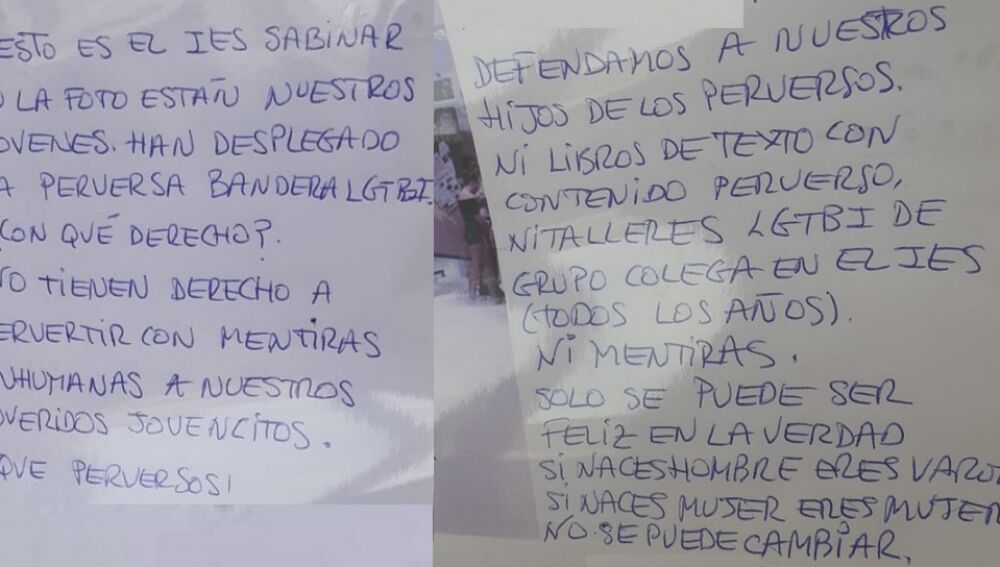 ESTO ES EL IES SABINAR
LA FOTO ESTAÑ NUESTROS
OVENES. HAN DESPLEGADO
A PERVERSA BANDERA LGTBI.
CON QUÉ DERECHO?.
O TIENEN DERECHO A
ERVERTIR CON MENTIRAS
NHUMANAS A NUESTROS
UERIDOS JOVENCITOS.
QUE PERVERSOS!
DEFENDAMOS A NUESTROS
HIJOS DE LOS PERVERSOS.
NI LIBROS DE TEXTO CON
CONTENIDO PERVERSO,
NI TALLERES LGTBI DE
GRUPO COLEGA EN EL IES
(TODOS LOS AÑOS).
NI MENTIRAS.
SOLO SE PUEDE SER
FELIZ EN LA VERDAD
SI NACES HOMBRE ERES VARO
SI NACES MUJER ERES MUJER
NO SE PUEDE CAMBIAR.